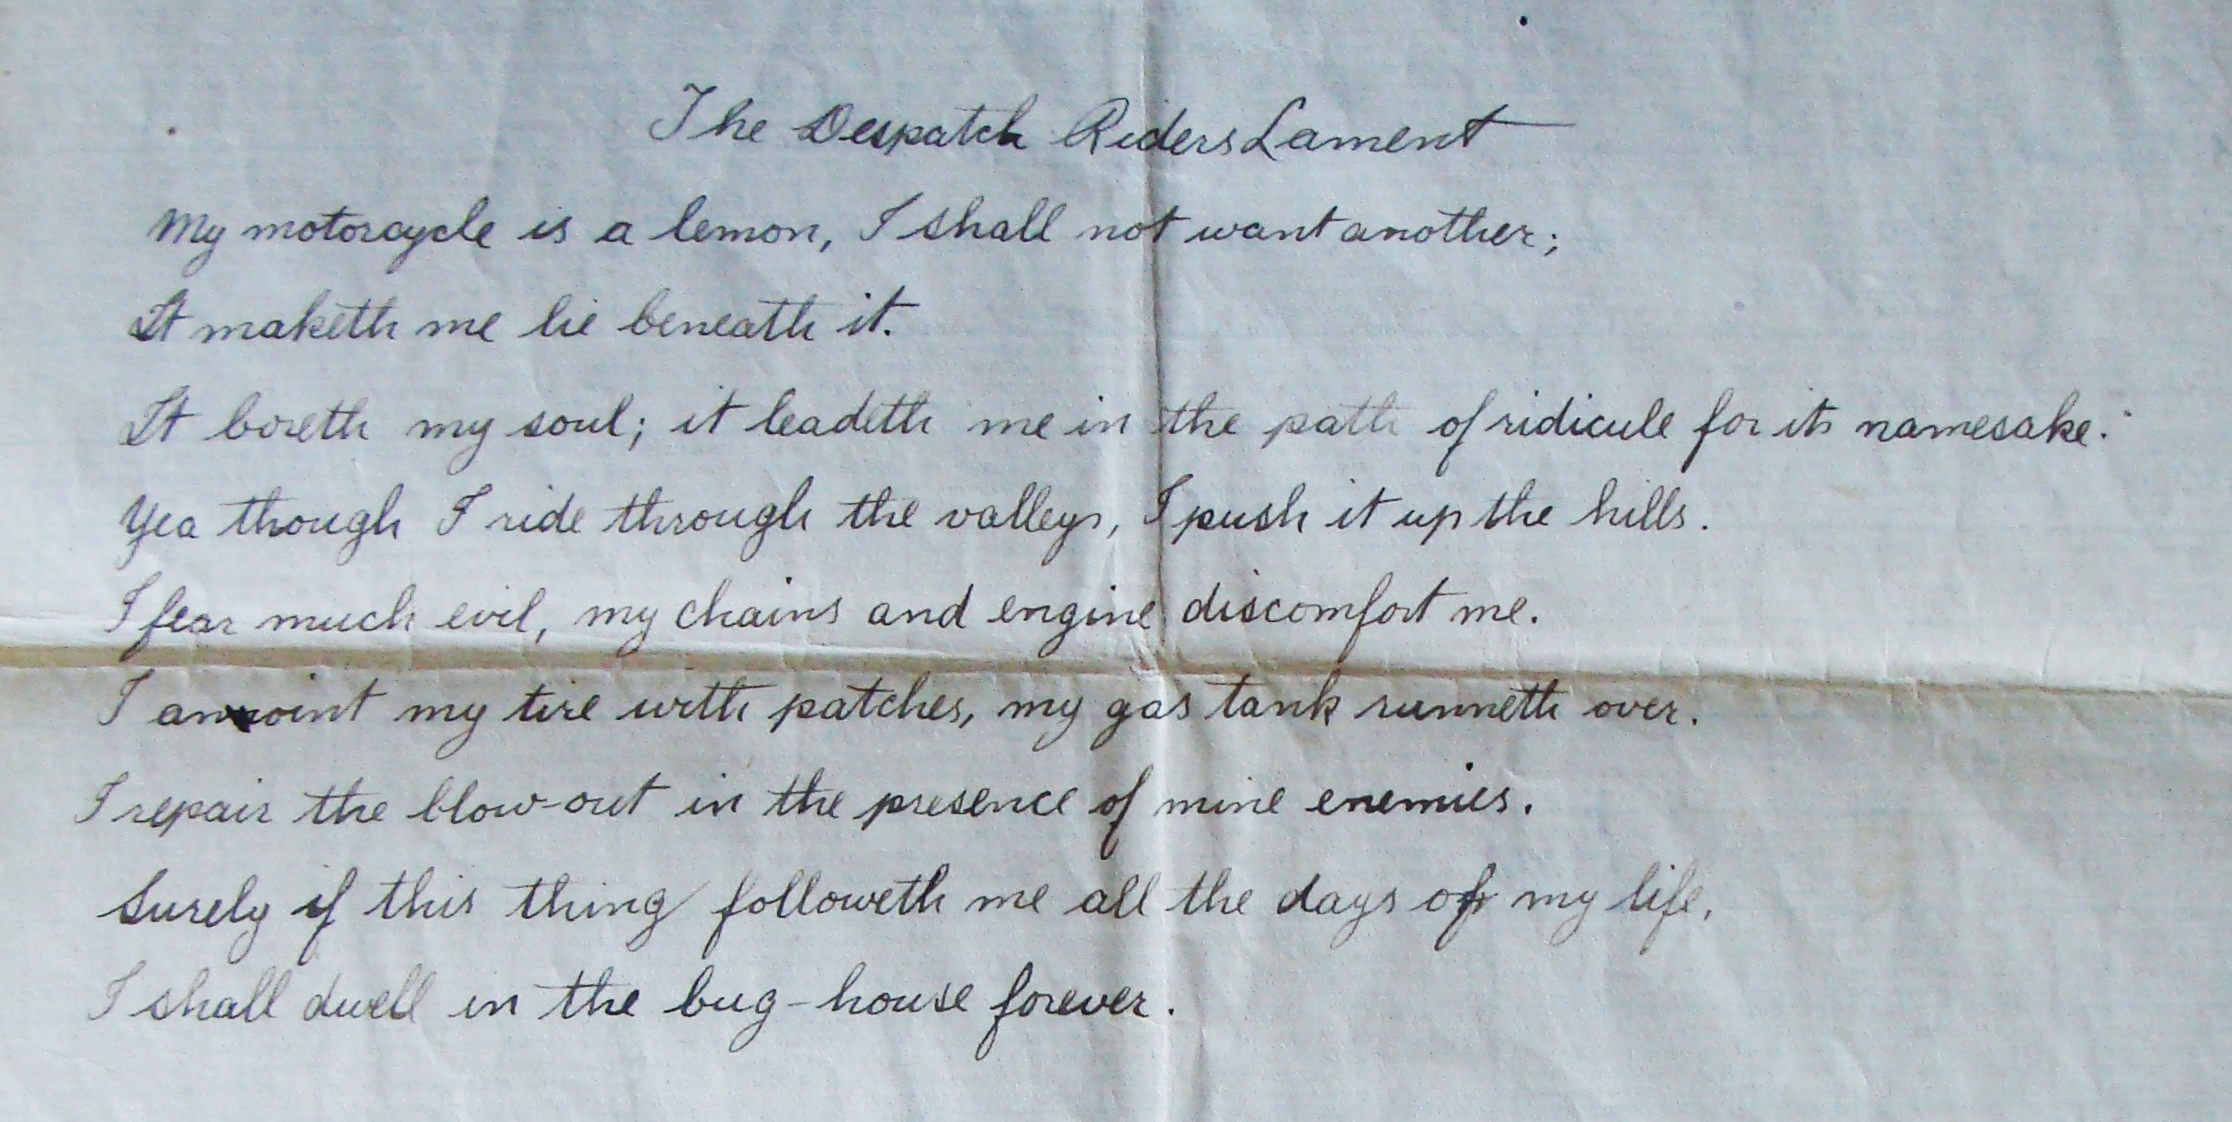 The Despatch Riders Lament
My motorcycle is a lemon, I shall not want another;
It maketh me lie beneath it.
It boreth my soul; it leadeth me in the path of ridicule for its namesake.
Yea though I ride through the valleys, I push it up the hills.
I fear much evil, my chains and engine discomfort me.
I annoint my tire with patches, my gas tank runneth over.
I repair the blow-out in the presence of mine enemies.
Surely if this thing followeth me all the days of my life,
I shall dwell in the bug-house forever.